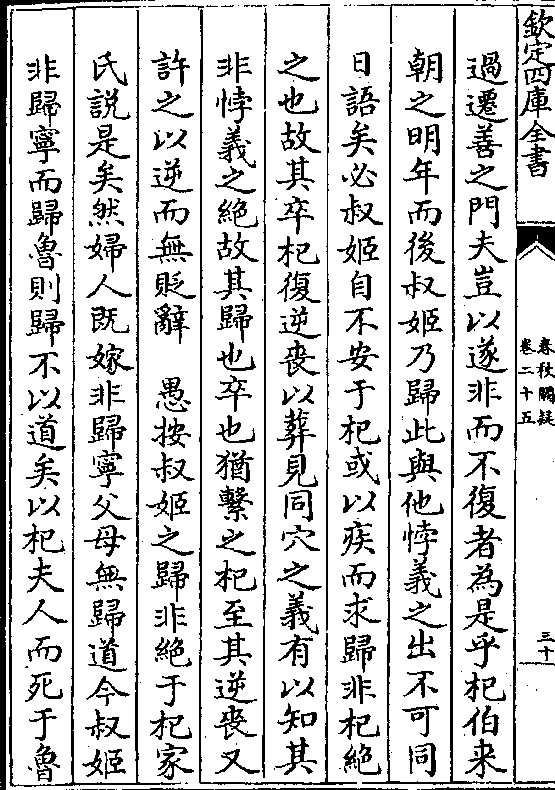 欽定四庫全書
春秋闕疑
卷二十五
三十
過遷善之門夫豈以遂非而不復者為是乎杞伯来
朝之明年而後叔姬乃歸此與他悖義之出不可同
日語矣必叔姬自不安于杞或以疾而求歸非杞絶
之也故其卒杞復逆喪以葬見同穴之義有以知其
非悖義之絶故其歸也卒也猶繫之杞至其逆喪又
許之以逆而無貶辭　愚按叔姬之歸非絶于杞家
氏説是矣然婦人既嫁非歸寧父母無歸道今叔姬
非歸寧而歸魯則歸不以道矣以杞夫人而死于魯